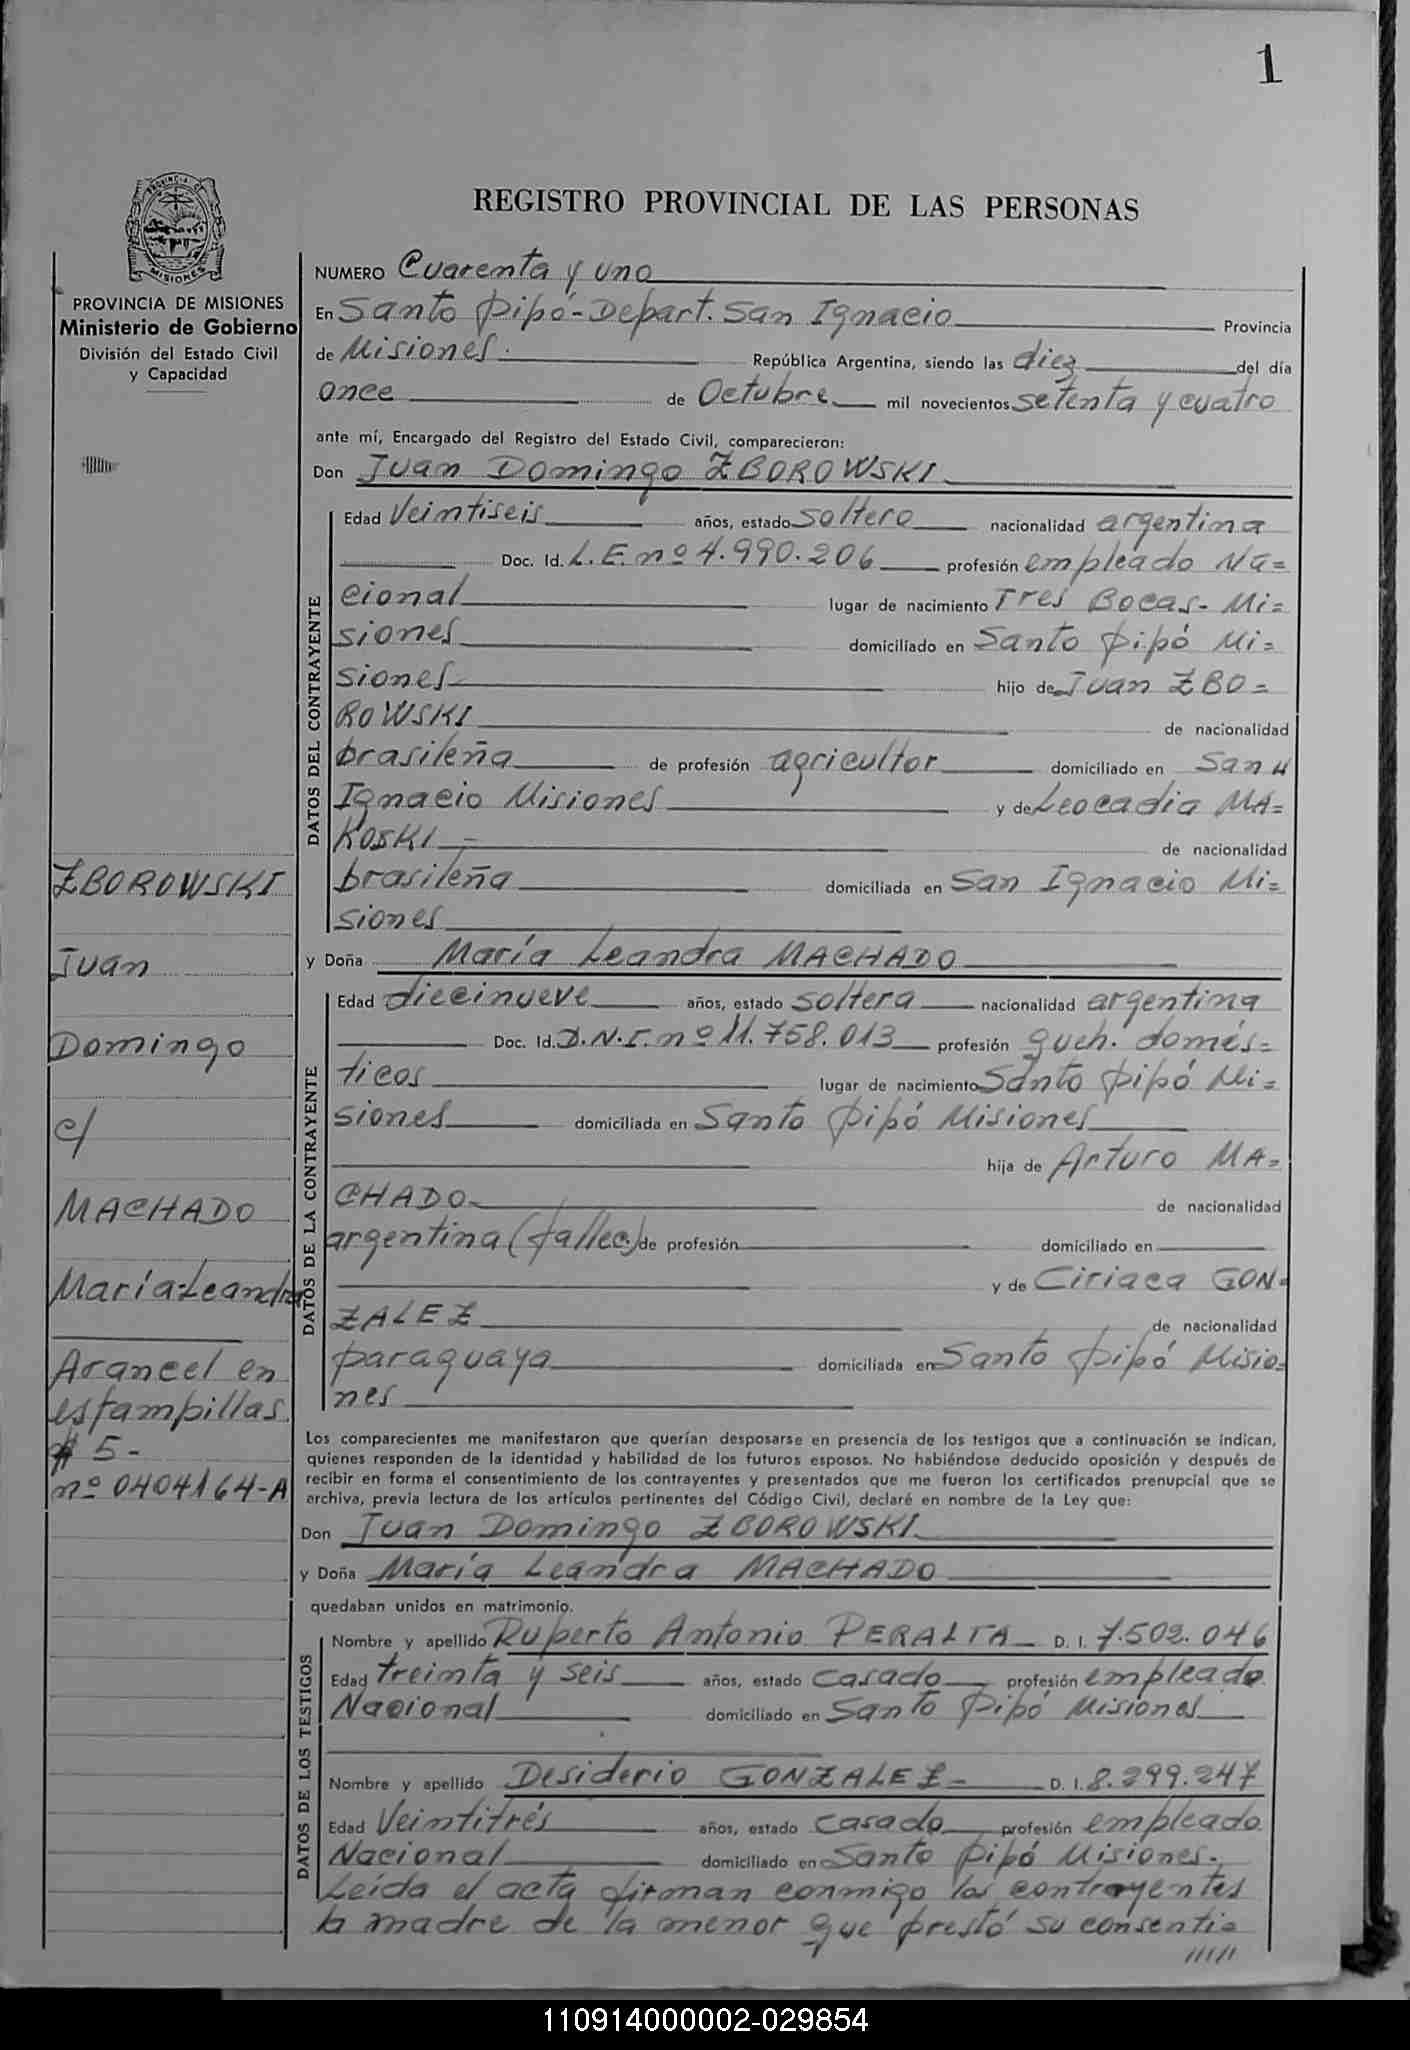 1
REGISTRO PROVINCIAL DE LAS PERSONAS
PROVINCIA DE MISIONES
PROVINCIA DE MISIONES
Ministerio de Gobierno
División del Estado Civil
y Capacidad
ZBOROWSKI
Juan
Domingo
c/
MACHADO
María-Leandra
Arancel en
estampillas
$ 5-
nº 0404164-A
NUMERO Cuarenta y uno
En Santo Pipó-Depart. San Ignacio Provincia
de Misiones. República Argentina, siendo las diez del día
once de Octubre mil novecientos setenta y cuatro
ante mí, Encargado del Registro del Estado Civil, comparecieron:
Don Juan Domingo ZBOROWSKI
DATOS DEL CONTRAYENTE
Edad Veintiseis años, estado soltero nacionalidad argentina
Doc. Id. L.E. nº 4.990.206 profesión empleado Na=
cional lugar de nacimiento Tres Bocas- Mi=
siones domiciliado en Santo Pipó Mi=
siones hijo de Juan ZBO=
ROWSKI de nacionalidad
brasileña de profesión agricultor domiciliado en San
Ignacio Misiones y de Leocadia MA=
KOSKI - de nacionalidad
brasileña domiciliada en San Ignacio Mi=
siones
y Doña María Leandra MACHADO
DATOS DE LA CONTRAYENTE
Edad diecinueve años, estado soltera nacionalidad argentina
Doc. Id. D.N.I. nº 11.758.013 profesión queh. domés=
ticos lugar de nacimiento Santo Pipó Mi=
siones domiciliada en Santo Pipó Misiones
hija de Arturo MA=
CHADO- de nacionalidad
argentina (fallec.) de profesión domiciliado en
y de Ciriaca GON=
ZALEZ de nacionalidad
paraguaya domiciliada en Santo Pipó Misio=
nes
Los comparecientes me manifestaron que querían desposarse en presencia de los testigos que a continuación se indican,
quienes responden de la identidad y habilidad de los futuros esposos. No habiéndose deducido oposición y después de
recibir en forma el consentimiento de los contrayentes y presentados que me fueron los certificados prenupcial que se
archiva, previa lectura de los artículos pertinentes del Código Civil, declaré en nombre de la Ley que:
Don Juan Domingo ZBOROWSKI
y Doña María Leandra MACHADO
quedaban unidos en matrimonio.
DATOS DE LOS TESTIGOS
Nombre y apellido Ruperto Antonio PERALTA D. I. 7.502.046
Edad treinta y seis años, estado casado profesión empleado
Nacional domiciliado en Santo Pipó Misiones
Nombre y apellido Desiderio GONZALEZ- D. I. 8.299.247
Edad Veintitrés años, estado casado profesión empleado
Nacional domiciliado en Santo Pipó Misiones.
Leída el acta firman conmigo los contrayentes
la madre de la menor que prestó su consenti=
/////
110914000002-029854